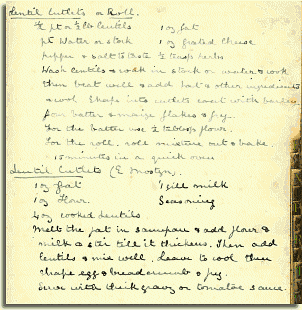 Lentil Cutlets or Roll.
½ pt or ½ lb Lentils 1 oz fat
pt Water or stock 1 oz grated Cheese
pepper & salt to taste ½ teasp herbs
Wash Lentils & soak in stock or water & cook
then beat well & add fat & other ingredients
& cool Shape into cutlets coat with
flour batter & maize flakes & fry.
For the batter use ½ tablesp flour.
For the roll. roll mixture out & bake
15 minutes in a quick oven
Lentil Cutlets (E
1 oz fat 1 gill milk
1 oz Flour. Seasoning
4 oz cooked Lentils
Melt the fat in saucepan & add flour &
milk & stir till it thickens. Then add
Lentils & mix well. Leave to cool then
shape egg & breadcrumb & fry.
Serve with thick gravy or tomatoe sauce.